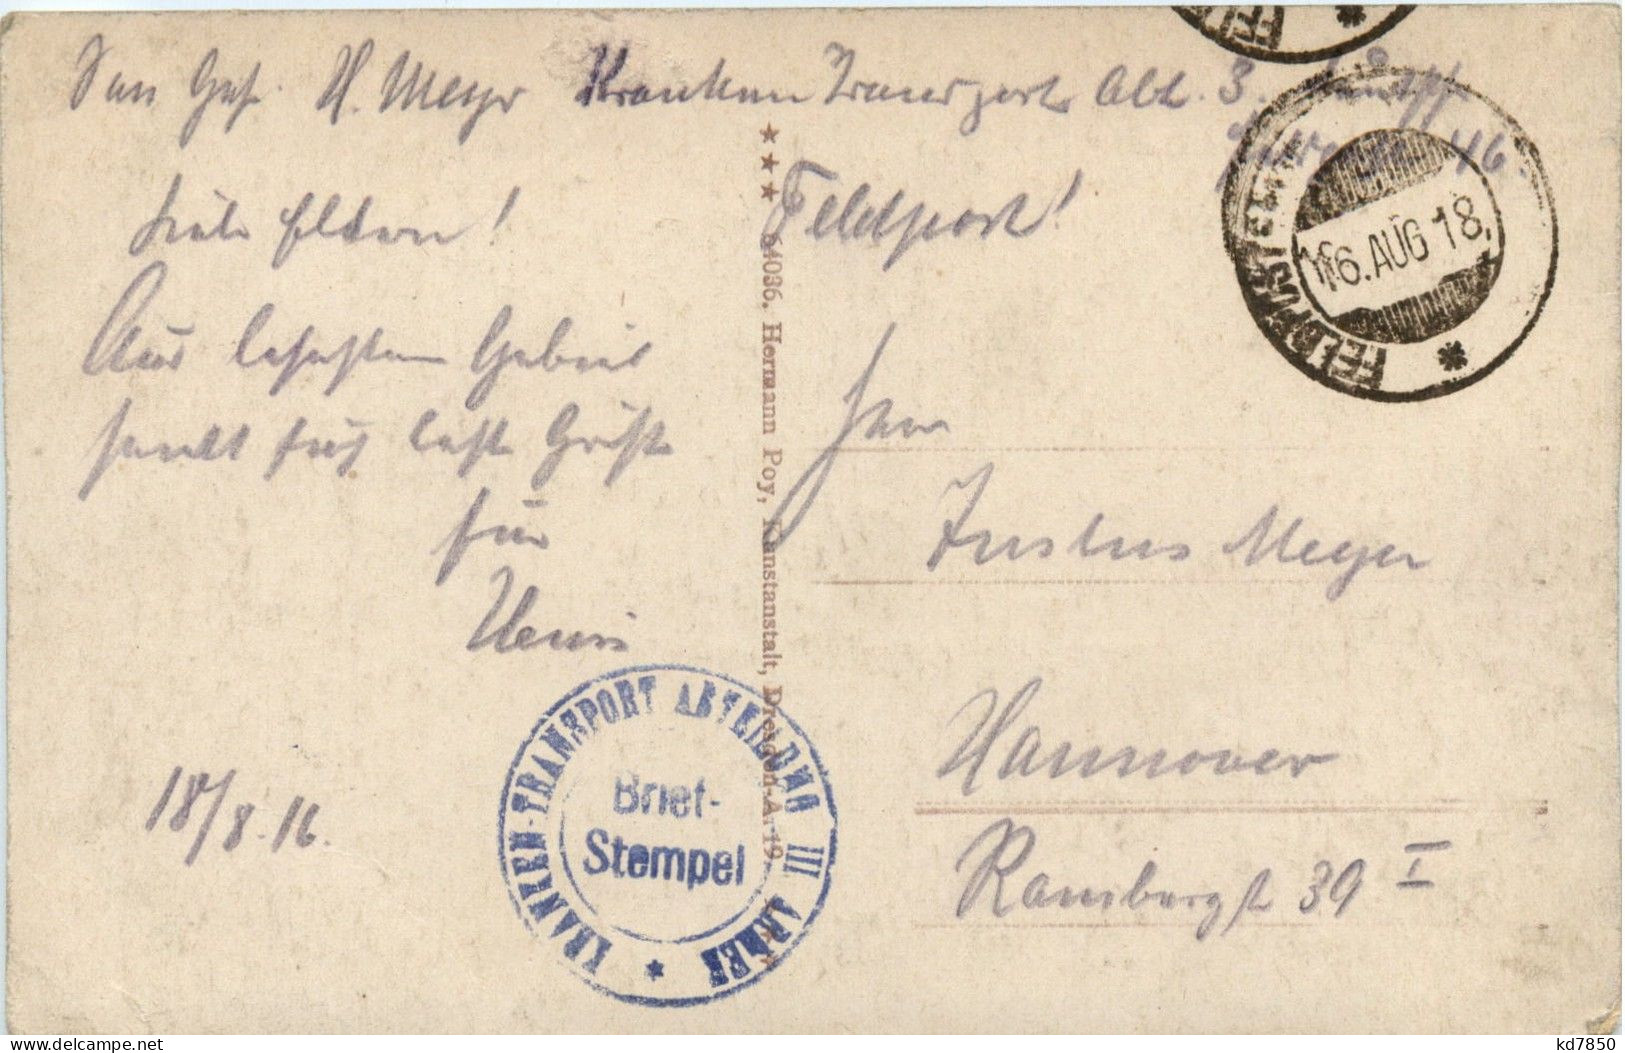 San Gef. H. Meyer Kranken Transport Abt. 3.
46.
Feldpost!
Liebe Eltern!
Aus besetztem Gebiet
sendt Euch beste Grüße
Euer
Henri
18/8.16.
Herrn
Justus Meyer
Hannover
Rambergst 39 I
*** 64036. Hermann Poy, Kunstanstalt, Dresden-A. 19.
KRANKEN-TRANSPORT ABTEILUNG III ARMEE *
Brief-
Stempel
FELDPOSTEXP.
16.AUG 18.
Delcampe.net
kd7850